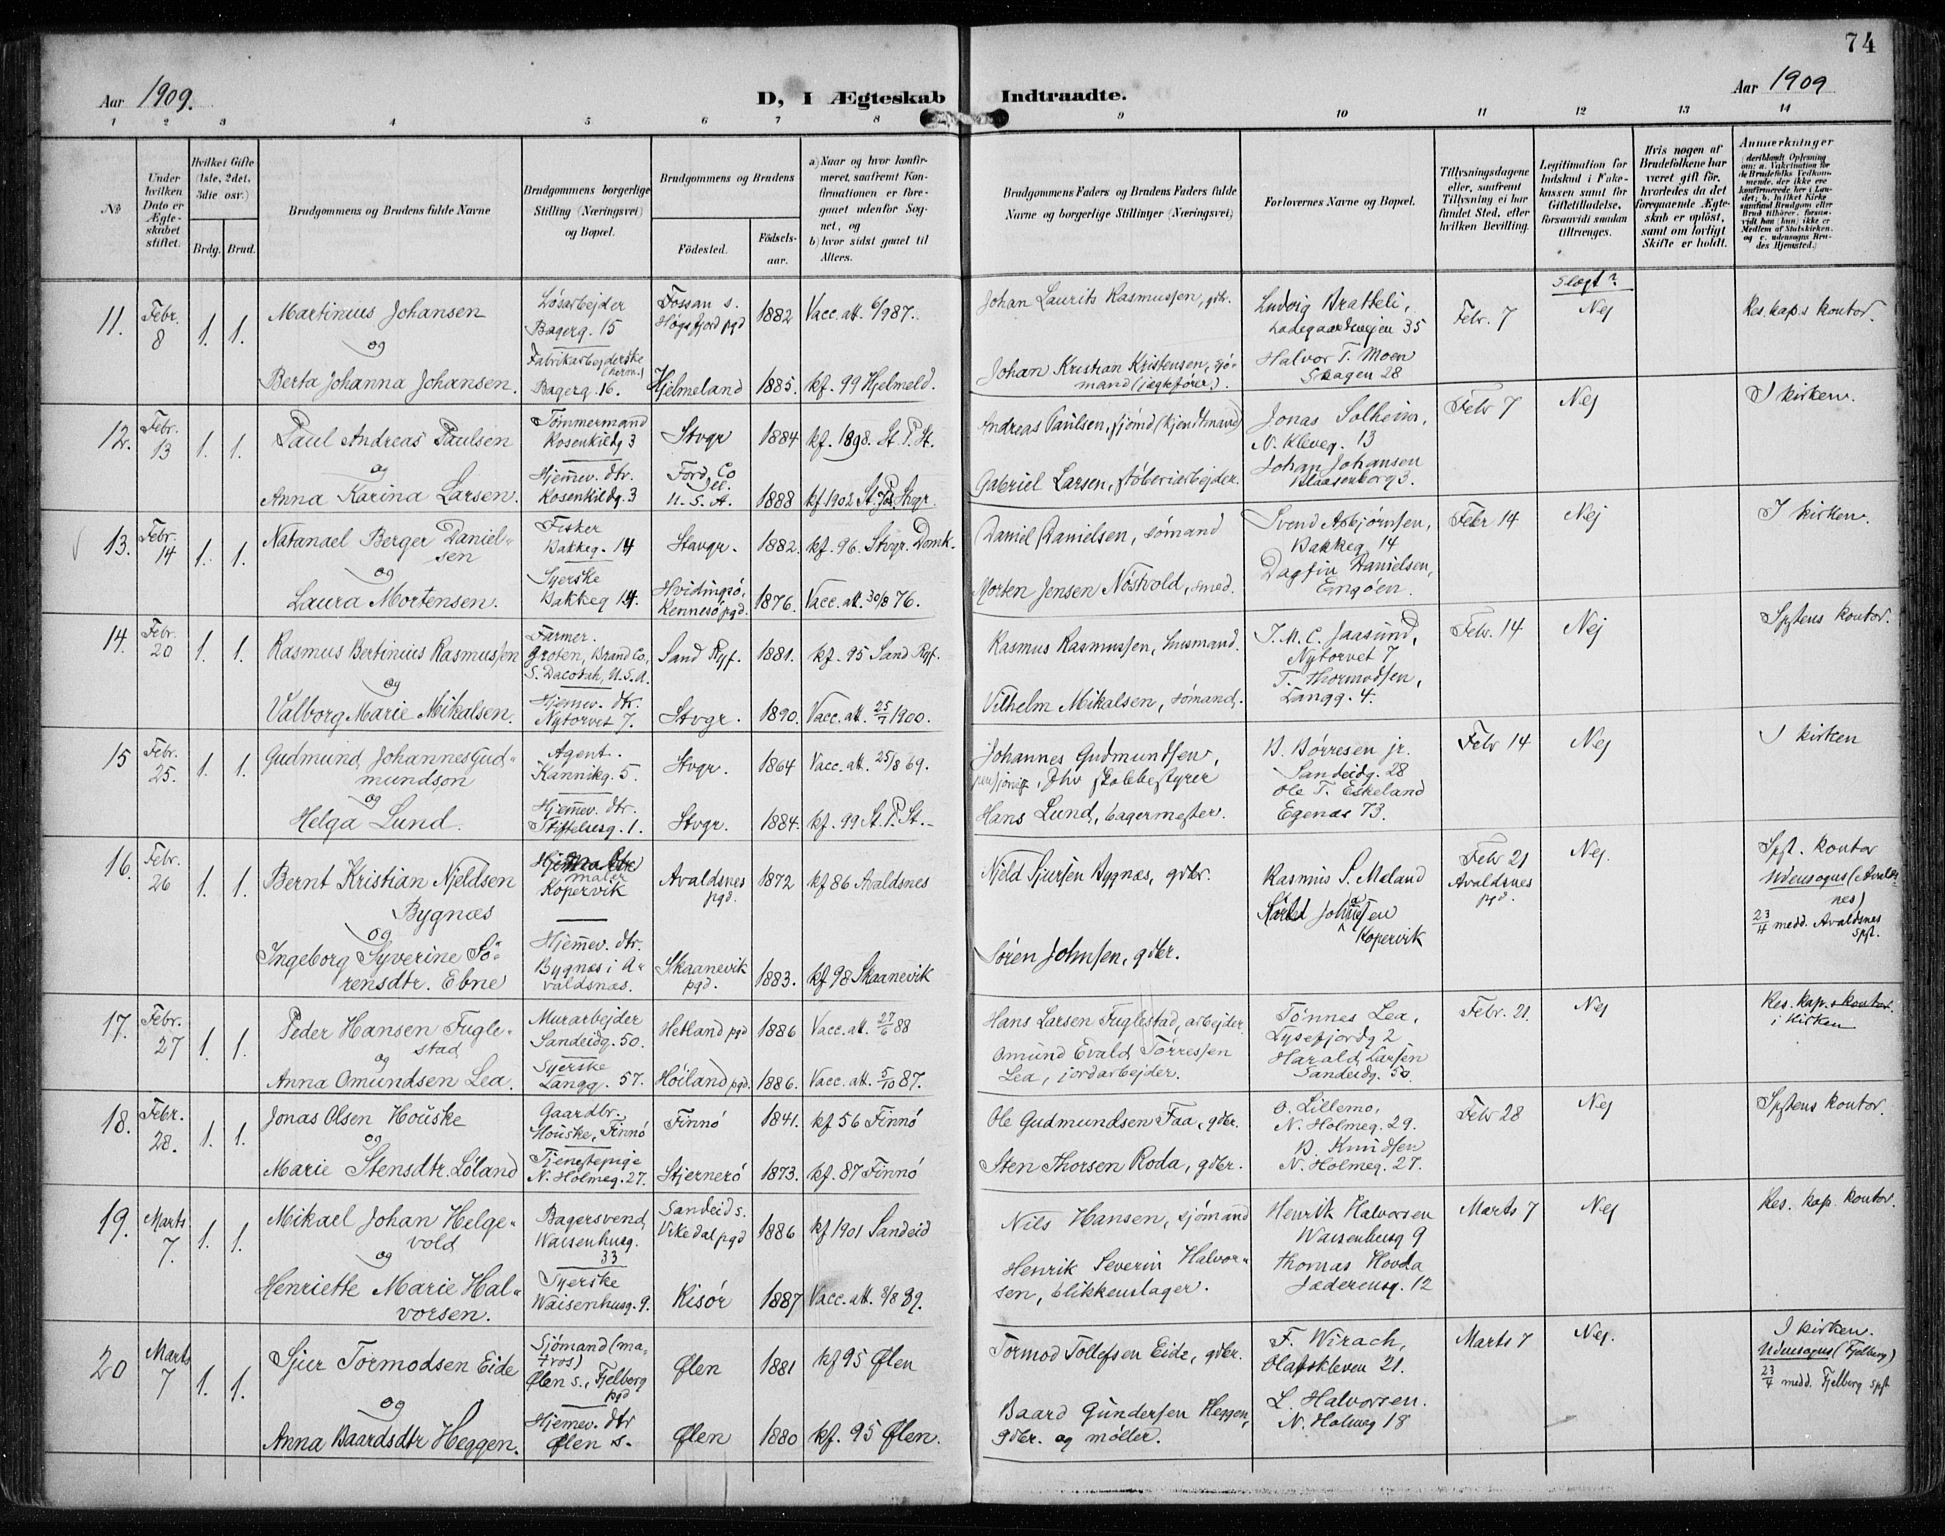 74
Aar 1909.
D, I Ægteskab Indtraadte.
Aar 1909
1 2 3 4 5 6 7 8 9 10 11 12 13 14
No
Under hvilken Dato er Ægteskabet stiftet.
Hvilket Gifte (1ste, 2det, 3die osv.)
Brdg. Brud.
Brudgommens og Brudens fulde Navne
Brudgommens borgerlige Stilling (Næringsvei) og Bopæl.
Brudgommens og Brudens
Fødested. Fødselsaar.
a) Naar og hvor konfirmeret, saafremt Konfirmationen er foregaaet udenfor Sognet, og
b) hvor sidst gaaet til Alters.
Brudgommens Faders og Brudens Faders fulde Navne og borgerlige Stillinger (Næringsvei)
Forlovernes Navne og Bopæl.
Tillysningsdagene eller, saafremt Tillysning ei har fundet Sted, efter hvilken Bevilling.
Legitimation for Indskud i Enkekassen samt for Giftetilladelse, forsaavidt saadan tiltrænges.
Hvis nogen af Brudefolkene har været gift før, hvorledes da det foregaaende Ægteskab er opløst, samt om lovligt Skifte er holdt.
Anmerkninger
(deriblandt Oplysning om: a. Vakcination for de Brudefolks Vedkommende, der ikke ere konfirmerede her i Landet; b. hvilket Kirkesamfund Brudgom eller Brud tilhører, forsaavidt han (hun) ikke er Medlem af Statskirken, og c. udensogns Brudes Hjemsted.)
Slægt?
11. Febr. 8 1. 1.
Martinius Johansen
og
Berta Johanna Johansen.
Løsarbejder
Bagerg. 15
Fabrikarbejderske (herm.)
Bagerg. 16.
Fossan s. Høgsfjord pgd 1882 Vacc. att. 6/9 87.
Hjelmeland 1885. kf. 99 Hjelmeld.
Johan Laurits Rasmussen, gbr.
Johan Kristian Kristensen, sjømand (jægtfører).
Ludvig Bratteli,
Ladegaardsvejen 35
Halvor T. Moen
Skagen 28
Febr. 7 Nej Res. kap.s kontor.
12. Febr. 13 1. 1.
Paul Andreas Paulsen
og
Anna Karina Larsen.
Tømmermand
Rosenkildg. 3
Hjemmev. dtr.
Rosenkildg. 3
Stvgr 1884 kf. 1898. St. P. St.
Ford Co
U. S. A. 1888 kf 1902 St. P. Stvgr.
Andreas Paulsen, sjømd (kjendtmand)
Gabriel Larsen, støberiarbejder.
Jonas Solheim,
N. Kleveg. 13
Johan Johansen
Blaasenborg 3.
Febr 7 Nej I kirken.
13. Febr. 14 1. 1.
Natanael Berger Danielsen
og
Laura Mortensen.
Fisker
Bakkeg. 14
Syerske
Bakkeg 14.
Stavgr. 1882. kf. 96. Stvgr. Domk.
Hvidingsö, Rennesö pgd. 1876. Vacc. att. 30/8 76.
Daniel Danielsen, sømand
Morten Jensen Nöstvold, smed.
Svend Asbjørnsen,
Bakkeg 14
Dagfin Danielsen,
Engöen.
Febr 14 Nej I kirken.
14. Febr. 20 1. 1.
Rasmus Bertinius Rasmussen
og
Valborg Marie Mikalsen.
Farmer.
Groten, Brand Co,
S. Dacotah, U.S.A.
Hjemmev. dtr.
Nytorvet 7.
Sand Ryf. 1881. kf. 95 Sand Ryf.
Stvgr. 1890. Vacc. att. 25/7 1900.
Rasmus Rasmussen, husmand.
Vilhelm Mikalsen, sømand.
J. M. C. Jaasund,
Nytorvet 7
T. Thormodsen,
Langg. 4.
Febr. 14 Nej Spstens kontor.
15 Febr. 25. 1. 1.
Gudmund Johannes Gudmundson
og
Helga Lund.
Agent.
Kannikg. 5.
Hjemmev. dtr.
Stiftelsesg. 1.
Stvgr. 1864 Vacc. att. 25/8 69.
Stvgr. 1884. kf. 99 St. P. St.
Johannes Gudmundsen,
skolebestyrer
Hans Lund, bagermester.
B. Børresen jr.
Sandeidg. 28
Ole T. Eskeland
Egenæs 73.
Febr 14 Nej I kirken
16. Febr. 26 1. 1.
Bernt Kristian Njeldsen
Bygnæs
og
Ingeborg Syverine Sörensdtr. Ebne
maler
Kopervik
Hjemmev. dtr.
Bygnæs i Avaldsnæs.
Avaldsnes pgd. 1872 kf 86 Avaldsnes
Skaanevik pgd. 1883. kf 98 Skaanevik
Njeld Sjursen Bygnæs, gdbr.
Søren Johnsen, gdbr.
Rasmus S. Mæland
Kopervik
Febr 21
Avaldsnes pgd.
Nej.
Spst. kontor
Udensogns (Avaldsnes)
23/4 medd. Avaldsnes spst.
17. Febr. 27 1. 1.
Peder Hansen Fuglestad
og
Anna Omundsen Lea.
Murarbejder
Sandeidg. 50.
Syerske
Langg. 57.
Hetland pgd 1886 Vacc. att. 27/6 88
Høiland pgd. 1886. Vacc. att. 5/10 87.
Hans Larsen Fuglestad, arbejder.
Omund Evald Tørressen
Lea, jordarbejder.
Tönnes Lea,
Lysefjordg 2
Harald Larsen
Sandeidg. 50.
Febr. 21 Nej
Res. kap.s kontor.
i kirken
18. Febr. 28. 1. 1.
Jonas Olsen Houske
og
Marie Stensdtr. Löland
Gaardbr.
Houske, Finnö
Tjenestepige
N. Holmeg. 27.
Finnö 1841. kf 56 Finnö
Stjernerö 1873. kf. 87 Finnö
Ole Gudmundsen Faa, gdbr.
Sten Thorsen Roda, gdbr.
O. Lillemo,
N. Holmeg. 29.
B. Knudsen
N. Holmeg. 27.
Febr 28 Nej Spstens kontor.
19. Marts 7. 1. 1.
Mikael Johan Helgevold
og
Henriette Marie Halvorsen.
Bagersvend
Waisenhusg. 33
Syerske
Waisenhusg. 9.
Sandeid s. Vikedal pgd 1886 kf 1901 Sandeid
Risör 1887 Vacc. att. 8/8 89.
Nils Hansen, sjømand
Henrik Severin Halvorsen, blikkenslager.
Henrik Halvorsen
Waisenhusg 9
Thomas Hovda
Jæderensg. 12
Marts 7 Nej Res. kap. kontor.
20 Marts 7 1. 1.
Sjur Tormodsen Eide
og
Anna Baardsdtr Heggen.
Sjømand (matros)
Ølen s., Fjelberg pgd
Hjemmev. dtr
Ølen s.
Ølen 1881 kf 95 Ølen
Ølen 1880 kf. 95 Ølen.
Tormod Tollefsen Eide, gdbr.
Baard Gundersen Heggen,
gdbr. og møller.
F. Wirach,
Olafskleven 21.
L. Halvorsen.
N. Holmeg 18
Marts 7 Nej.
I kirken.
Udensogns (Fjelberg)
23/4 medd. Fjelberg spst